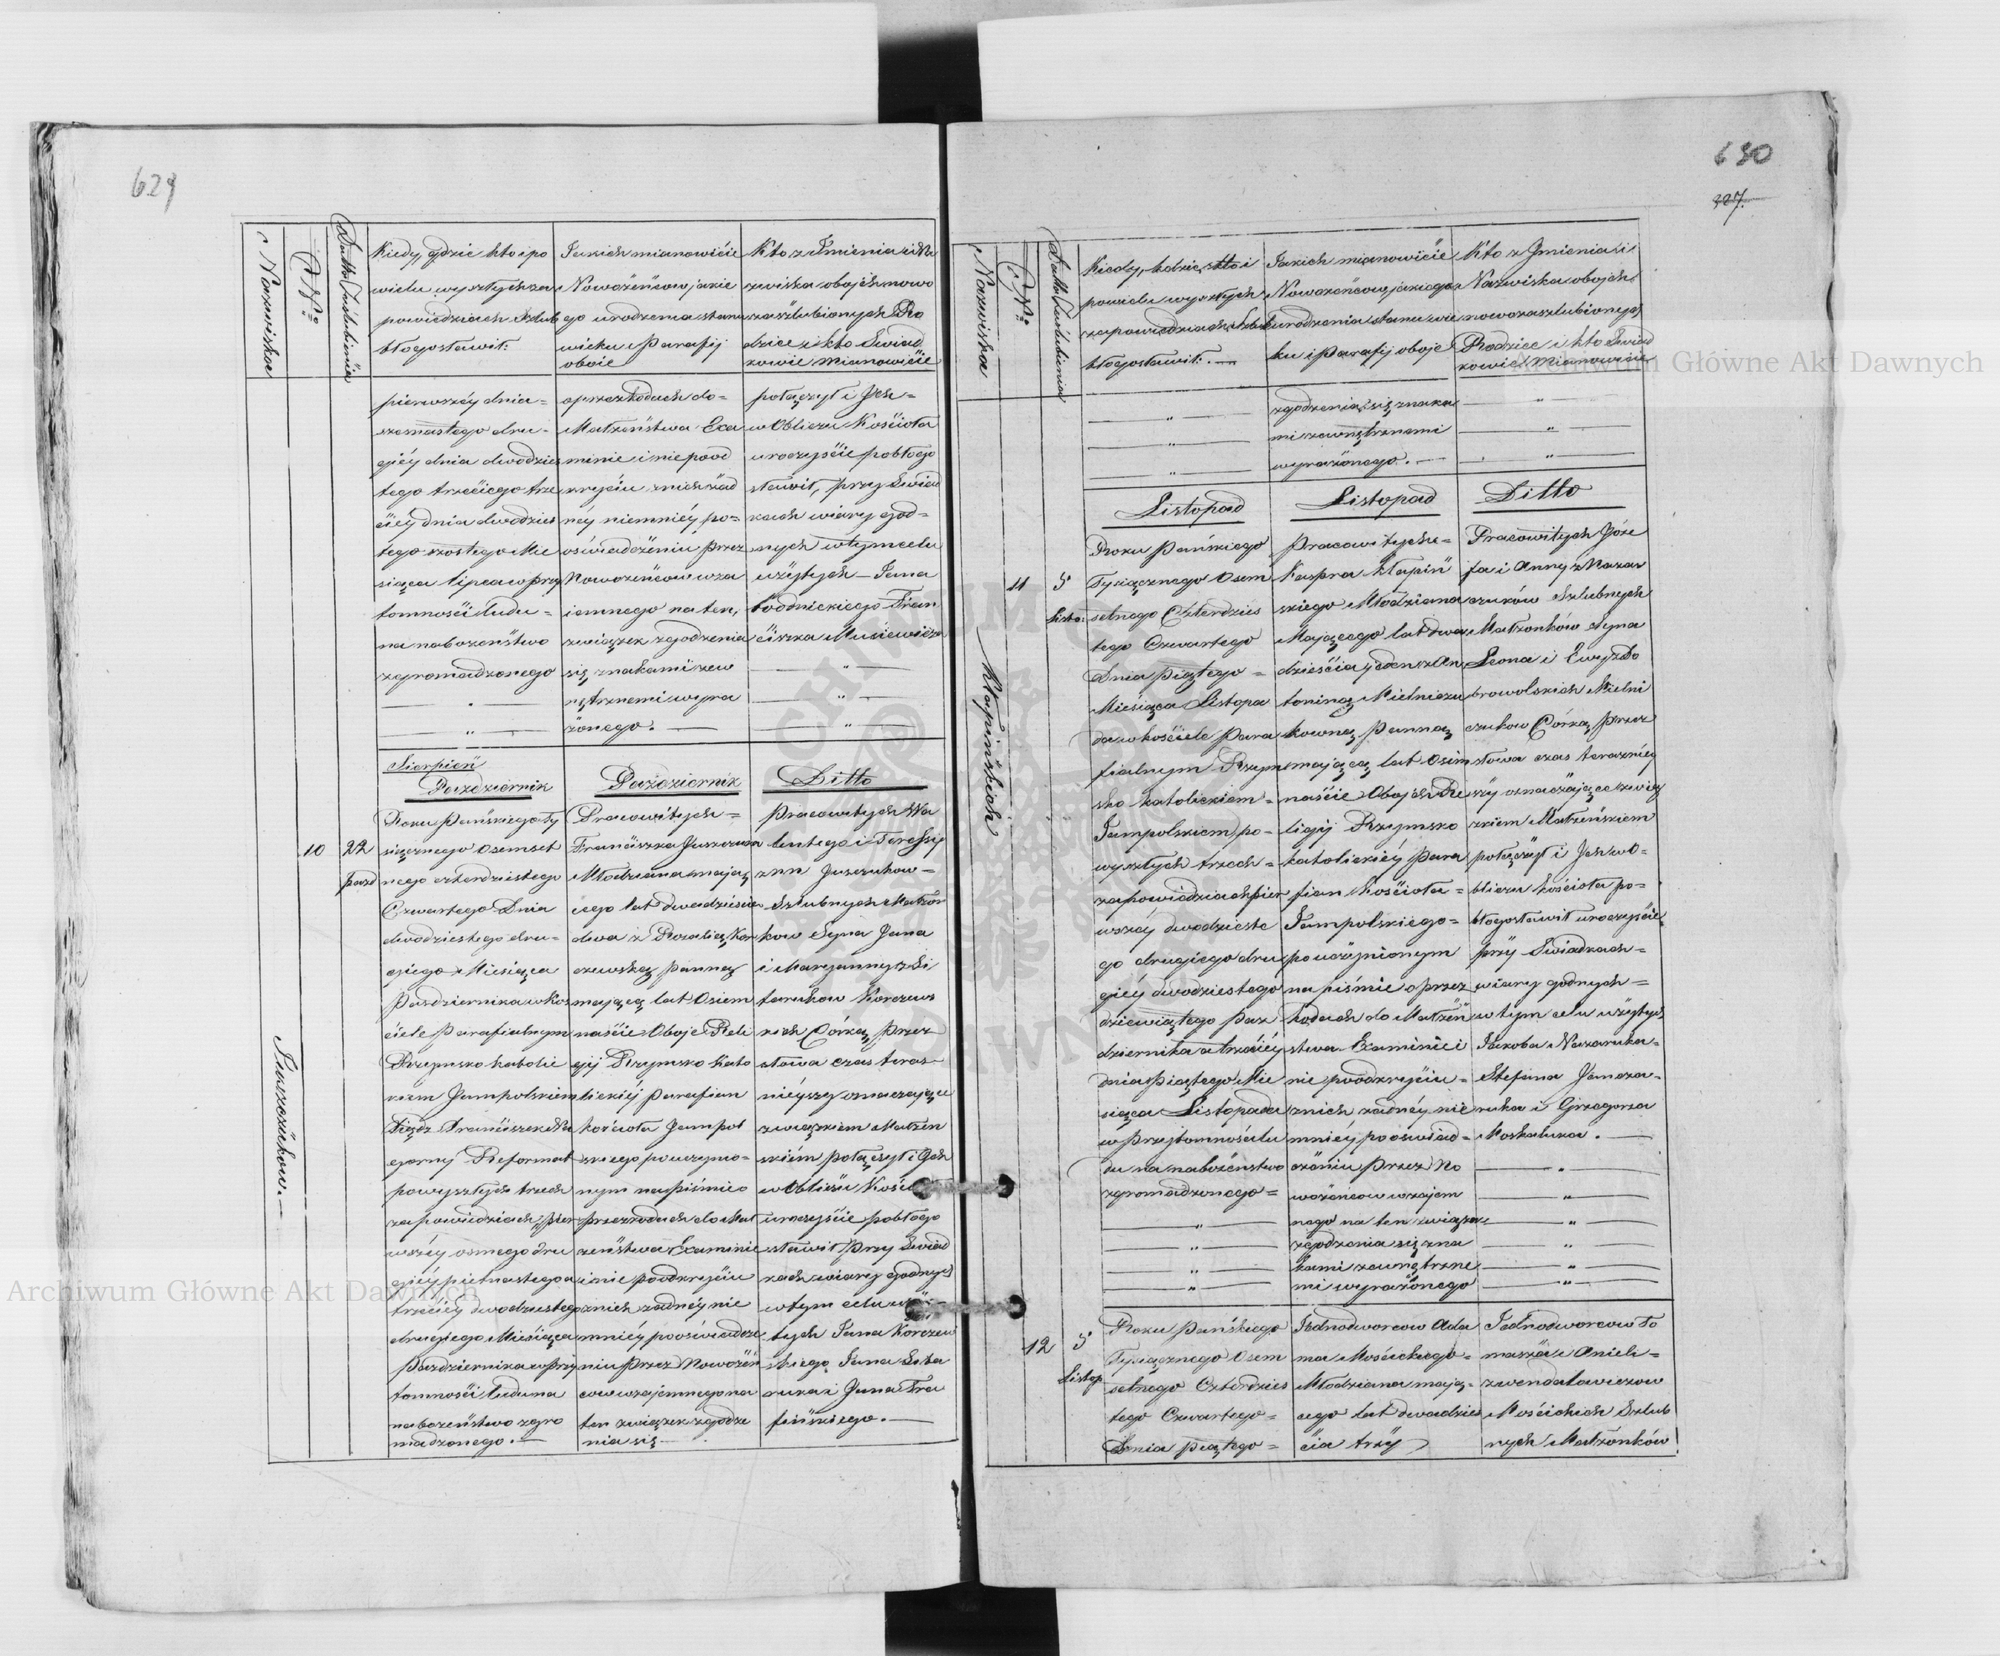 629
Nazwiska
No
Datta Zaślubinia
Kiedy, gdzie kto i po
wielu wyszłych za
powiedziach Szlub
błogosławił:
Jakich mianowicie
Nowożeńców jakie
go urodzenia stanu
wieku i Parafij
oboie
Kto z Imienia i Na
zwiska obojch nowo
zaszlubionych Ro
dzice i kto Swiad
kowie mianowicie
pierwszéy dnia =
szesnastego dru =
giéy dnia dwódzies
tego trzeciego trze
ciéy dnia dwódzies
tego szostego Mie
siąca lipca w przy
tomności ludu =
na nabożeństwo
zgromadzonego
o przeszkodach do =
Małżeństwa Exa
minie i nie pood
kryciu znich żad
néy niemniéy po =
oświadczeniu przez
Nowożeńców wza
iemnego na ten,
związek zgodzenia
się znakami zew
nętrznemi wyra
żonego. —
połączył i Ych =
w Obliczu Kościoła
uroczyście pobłogo
sławił, przy Swiad
kach wiary god =
nych w tym celu
użytych — Jana
Fran
ciszka Musiewicza
Sierpień
Październik
Październik
Ditto
10
22
Pazd
Juszczuków. —
Roku Pańskiego Ty
siącznego Osemset
nego czterdziestego
Czwartego Dnia
dwódziestego dru =
giego Miesiąca
Pazdziernika w Koś
ciele Parafialnym
Rzymsko katolic
kiem Jampolskiem
Xiądz Franciszek
Reformat
po wyszłych trzech
zapowiedziach, pier
wszéy osmego dru
giéy pietnastego a
trzeciéy dwódziestego
drugiego Miesiąca
Pazdziernika w przy
tomności ludu na
nabożeństwo zgro
madzonego. —
Pracowitych =
Franciszka Juszczuka
Młodziana mają
cego lat dwadzieścia
dwa z Rozalią Kor
czewską Panną
mającą lat Osiem
naście Oboje Reli
gij Rzymsko kato
lickiéj Parafian
Kościoła Jampol
skiego po uczynio =
nym na piśmie o
przeszkodach do Mał
żeństwa Examinie
i nie poodkryciu
znich żadnéy nie
mniéy po oświadcze
niu przez Nowożeń
ców wzajemnego na
ten związek zgodze
nia się —
Pracowitych Wa
lentego i Teressy
z nn Juszczuków =
Szlubnych Małżon
ków Syna Jana
i Maryanny z Li
taruków Korczews
kich Córką, przez
słowa czas teraz —
niéyszy oznaczające
związkiem Małżeń
skiém połączył i Ych
w Obliczu Kości
uroczyście pobłogo
sławił przy Swiad
kach wiary godnych
w tym celu uży
tych Jana Korczew
skiego, Jana
i Jana Tra
fińskiego. —
630
327.
Nazwiska
No
Datta Zaślubinia
Kiedy, kdzie, kto i
po wielu wyszłych
zapowiedziach Szlub
błogosławił: —
Jakich mianowicie
Nowożeńców jakiego
urodzenia stanu wie
ku i Parafij oboje
Kto z Jmienia i
Nazwiska obojch
nowozaszlubionych
Rodzice i kto Swiad
kowie Mianowicie
zgodzenia się znaka
mi zewnętrznemi
wyrażonego. —
Listopad
Listopad
Ditto
11
5
Listo:
Kłapińskich
Roku Pańskiego
Tysiącznego Osem
setnego Czterdzies
tego Czwartego
Dnia piątego =
Miesiąca Listopa
da w kościele Para
fialnym Rzym
sko katolickiem =
Jampolskiem po =
wyszłych trzech =
zapowiedziach pier
wszéy dwódzieste
go drugiego dru
giéy dwódziestego
dziewiątego Paz
dziernika a trzeciéy
dnia Piątego Mie
siąca Listopada
w Przytomności lu
du na nabożeństwo
zgromadzonego =
Pracowitych =
Kaspra Kłapiń
skiego Młodziana
Mającego lat dwa
dzieścia jeden z An
toniną Mielniczu
kowną Panną
mającą lat Osim
naście Obojch Re
ligij Rzymsko
katolickiéy Para
fian Kościoła =
Jampolskiego =
po uczynionym
na piśmie o przez
kodach do Małżeń
stwa Examinie i
nie poodkryciu =
znich żadnéy nie
mniéy po oświad =
czéniu przez No
wożeńców wzajem
nego na ten związek
zgodzenia się zna
kami zewnętrzne
mi wyrażonego
Pracowitych Józe
fa i Anny z Nazar
czuków Szlubnych
Małżonków Syna
Leona i Ewy z Do
browolskich Mielni
czuków Córką, przez
słowa czas teraźniéy
szy oznaczające związ
kiem Małżeńskiem
połączył i Ych w O =
bliczu kościoła po =
błogosławił uroczyście
przy Swiadkach =
wiary godnych =
w tym celu użytych
Jakoba Nazaruka =
Stefana
ruka i Grzegorza
Moskaluka. —
12
5
Listop
Roku Pańskiego
Tysiącznego Osem
setnego Czterdzies
tego Czwartego =
Dnia piątego =
Jednodworców Ada
ma Mościckiego =
Młodziana mają =
cego lat dwadzieś
cia trzy
Jednodworców To
masza i Anieli =
z Wendałowiczow
Mościckich Szlub
nych Małżonków
Archiwum Główne Akt Dawnych
Archiwum Główne Akt Dawnych